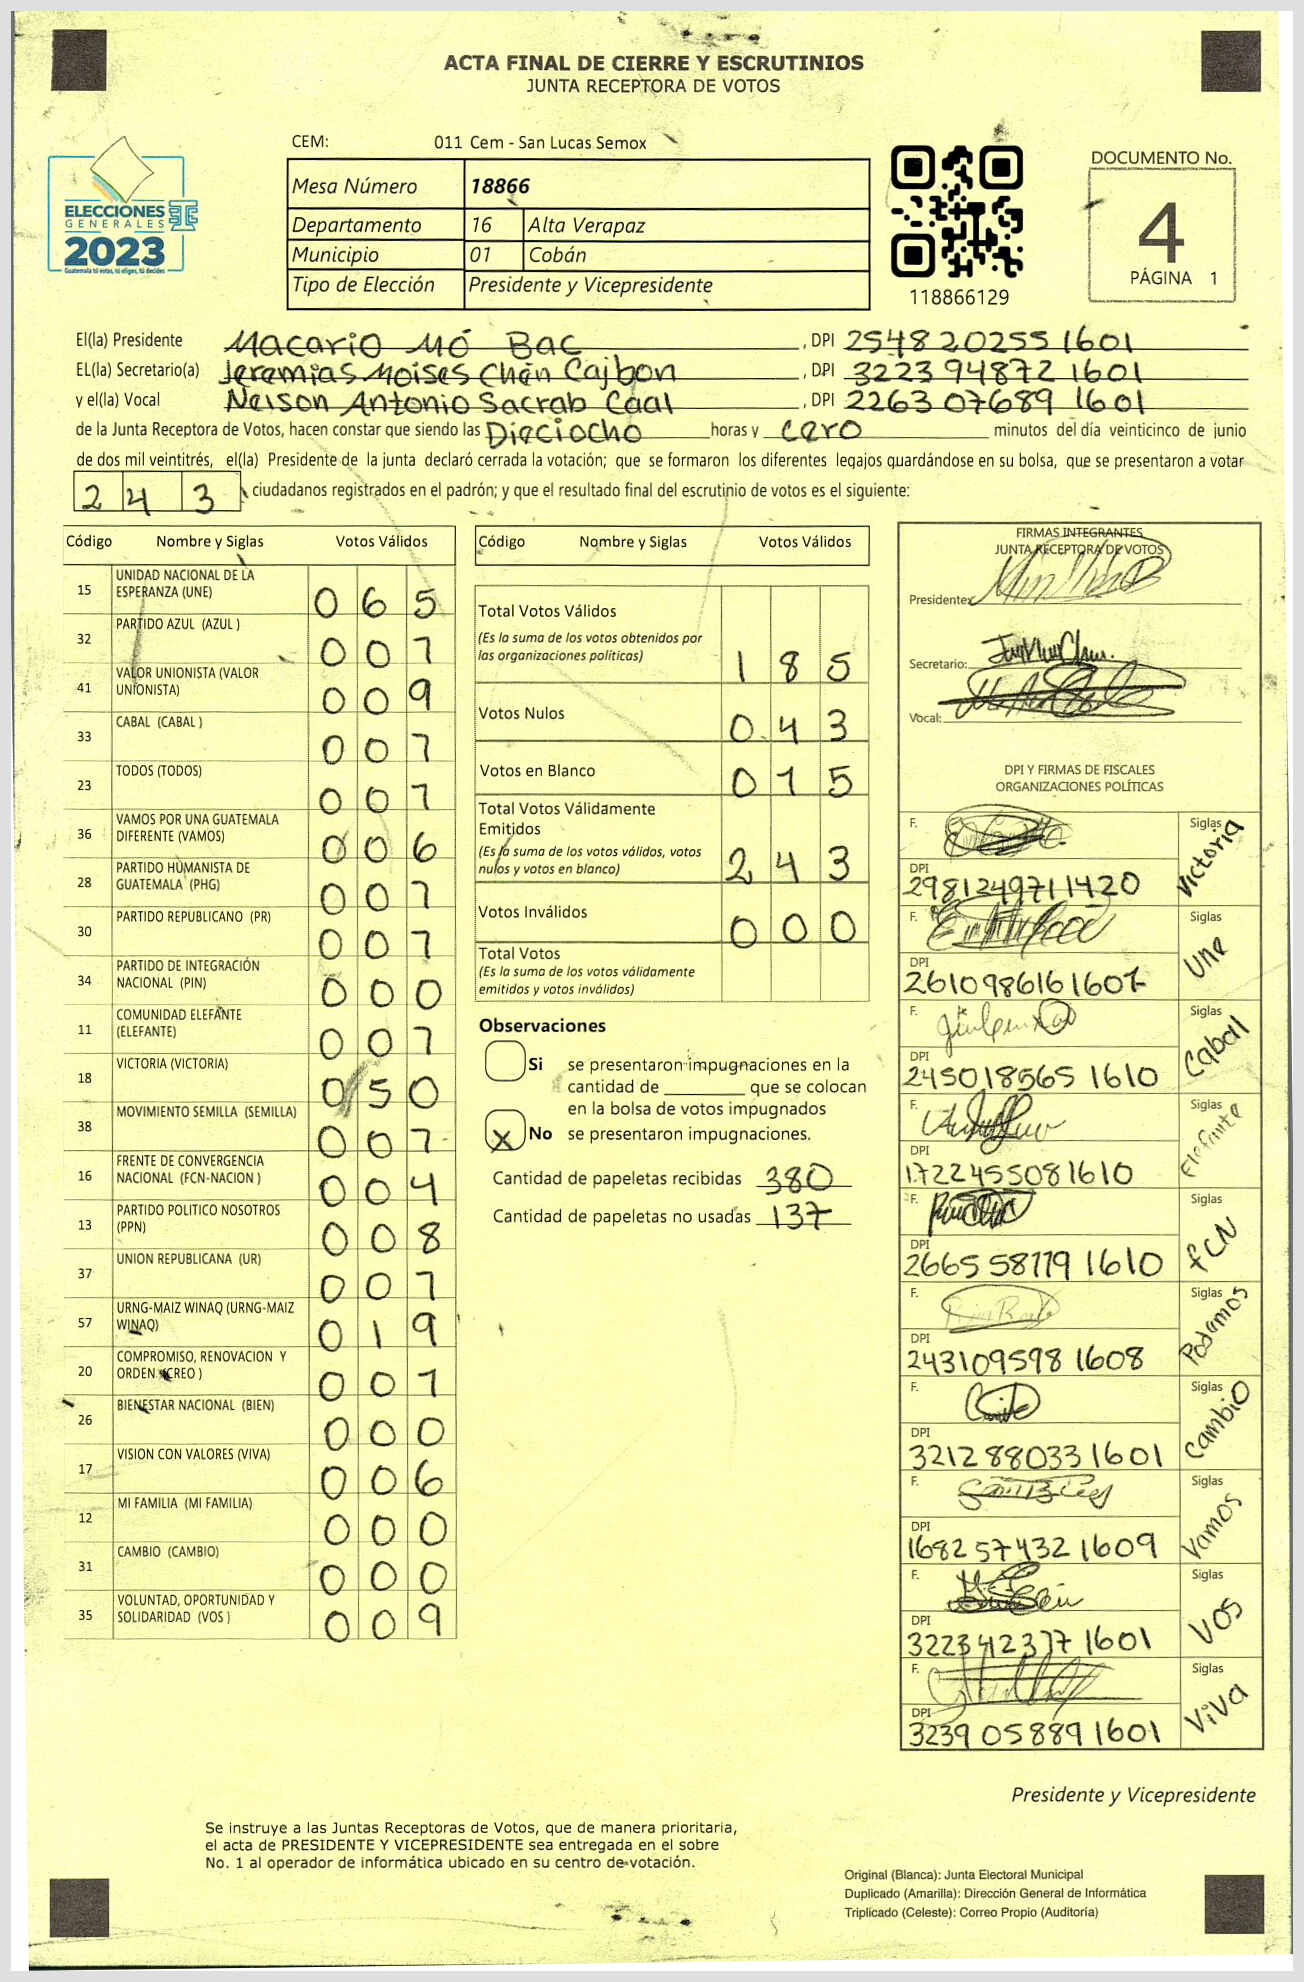 ACTA FINAL DE CIERRE Y ESCRUTINIOS
JUNTA RECEPTORA DE VOTOS
CEM: 011 Cem - San Lucas Semox
Mesa Número 18866
Departamento 16 Alta Verapaz
Municipio 01 Cobán
Tipo de Elección Presidente y Vicepresidente
ELECCIONES
GENERALES
2023
Guatemala tú votas, tú eliges, tú decides
118866129
DOCUMENTO No.
4
PÁGINA 1
El(la) Presidente Macario Mó Bac, DPI 2548 20255 1601
EL(la) Secretario(a) Jeremias Moises Chén Cajbon, DPI 3223 94872 1601
y el(la) Vocal Nelson Antonio Sacrab Caal, DPI 2263 07689 1601
de la Junta Receptora de Votos, hacen constar que siendo las Dieciocho horas y cero minutos del día veinticinco de junio
de dos mil veintitrés, el(la) Presidente de la junta declaró cerrada la votación; que se formaron los diferentes legajos guardándose en su bolsa, que se presentaron a votar
2 4 3 ciudadanos registrados en el padrón; y que el resultado final del escrutinio de votos es el siguiente:
Código Nombre y Siglas Votos Válidos
15 UNIDAD NACIONAL DE LA ESPERANZA (UNE) 0 6 5
32 PARTIDO AZUL (AZUL ) 0 0 7
41 VALOR UNIONISTA (VALOR UNIONISTA) 0 0 9
33 CABAL (CABAL ) 0 0 7
23 TODOS (TODOS) 0 0 7
36 VAMOS POR UNA GUATEMALA DIFERENTE (VAMOS) 0 0 6
28 PARTIDO HUMANISTA DE GUATEMALA (PHG) 0 0 7
30 PARTIDO REPUBLICANO (PR) 0 0 7
34 PARTIDO DE INTEGRACIÓN NACIONAL (PIN) 0 0 0
11 COMUNIDAD ELEFANTE (ELEFANTE) 0 0 7
18 VICTORIA (VICTORIA) 0 5 0
38 MOVIMIENTO SEMILLA (SEMILLA) 0 0 7
16 FRENTE DE CONVERGENCIA NACIONAL (FCN-NACION ) 0 0 4
13 PARTIDO POLITICO NOSOTROS (PPN) 0 0 8
37 UNION REPUBLICANA (UR) 0 0 7
57 URNG-MAIZ WINAQ (URNG-MAIZ WINAQ) 0 1 9
20 COMPROMISO, RENOVACION Y ORDEN (CREO ) 0 0 7
26 BIENESTAR NACIONAL (BIEN) 0 0 0
17 VISION CON VALORES (VIVA) 0 0 6
12 MI FAMILIA (MI FAMILIA) 0 0 0
31 CAMBIO (CAMBIO) 0 0 0
35 VOLUNTAD, OPORTUNIDAD Y SOLIDARIDAD (VOS ) 0 0 9
Código Nombre y Siglas Votos Válidos
Total Votos Válidos
(Es la suma de los votos obtenidos por
las organizaciones políticas) 1 8 5
Votos Nulos 0 4 3
Votos en Blanco 0 1 5
Total Votos Válidamente
Emitidos
(Es la suma de los votos válidos, votos
nulos y votos en blanco) 2 4 3
Votos Inválidos 0 0 0
Total Votos
(Es la suma de los votos válidamente
emitidos y votos inválidos)
Observaciones
Si se presentaron impugnaciones en la
cantidad de ________ que se colocan
en la bolsa de votos impugnados
X No se presentaron impugnaciones.
Cantidad de papeletas recibidas 380
Cantidad de papeletas no usadas 137
FIRMAS INTEGRANTES
JUNTA RECEPTORA DE VOTOS
Presidente:
Secretario:
Vocal:
DPI Y FIRMAS DE FISCALES
ORGANIZACIONES POLÍTICAS
F. Siglas Victoria
DPI 2981249711420
F. Siglas Une
DPI 2610986161607
F. Siglas Caball
DPI 245018565 1610
F. Siglas Elefante
DPI 1722455081610
F. Siglas FCN
DPI 2665 58779 1610
F. Siglas Podamos
DPI 243109598 1608
F. Siglas Cambio
DPI 3212 88033 1601
F. Siglas Vamos
DPI 1682 57432 1609
F. Siglas VOS
DPI 322342377 1601
F. Siglas Viva
DPI 3239 05889 1601
Presidente y Vicepresidente
Se instruye a las Juntas Receptoras de Votos, que de manera prioritaria,
el acta de PRESIDENTE Y VICEPRESIDENTE sea entregada en el sobre
No. 1 al operador de informática ubicado en su centro de votación.
Original (Blanca): Junta Electoral Municipal
Duplicado (Amarilla): Dirección General de Informática
Triplicado (Celeste): Correo Propio (Auditoría)